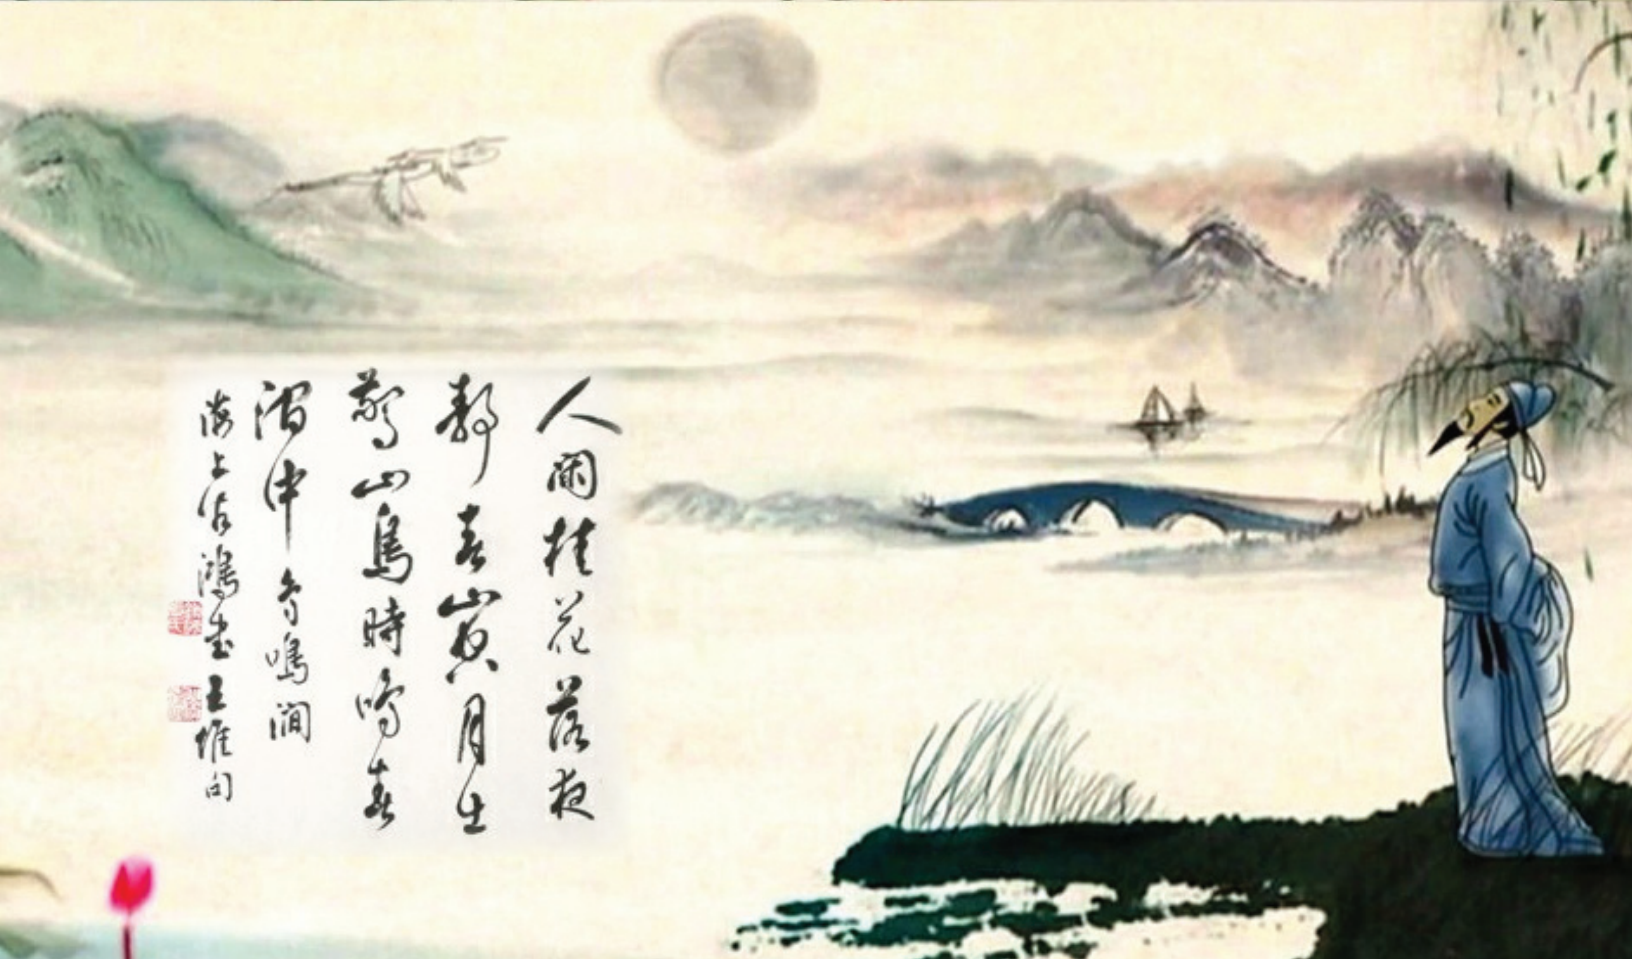 人閒桂花落夜
靜春山空月出
驚山鳥時鳴春
澗中 鳥鳴澗
海上鴻書王維句